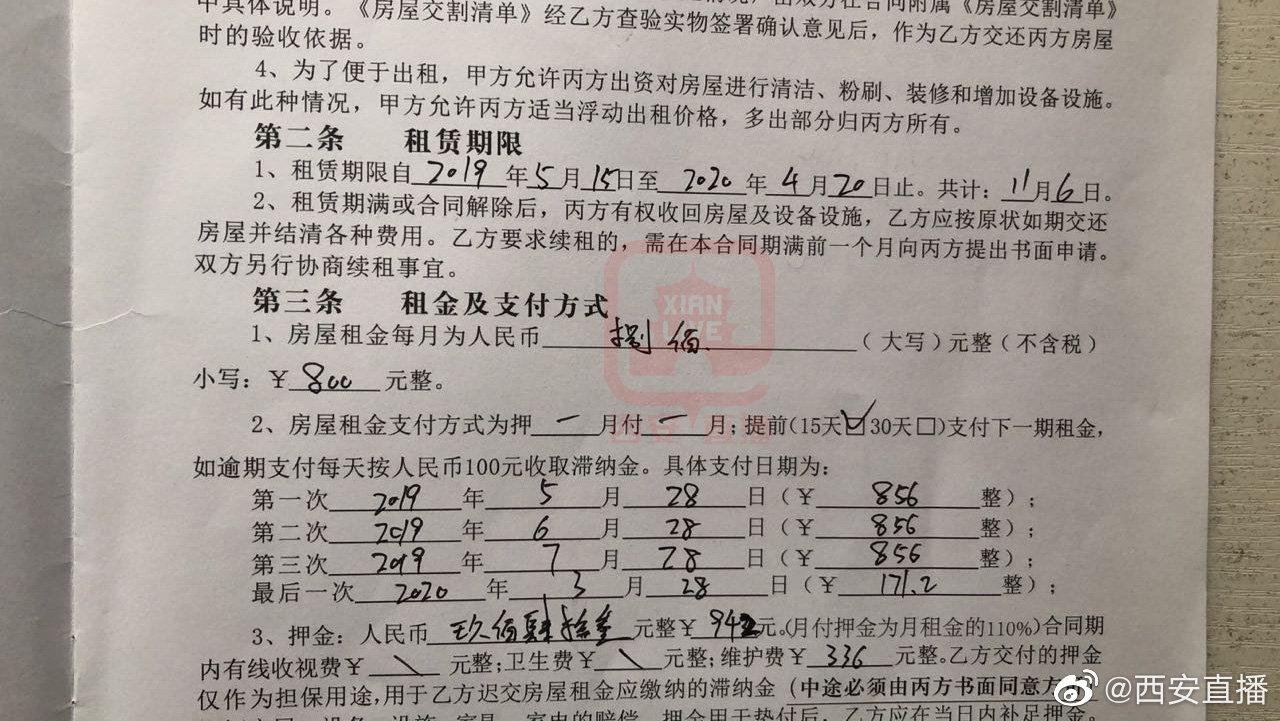 中具体说明。《房屋交割清单》经乙方查验实物签署确认意见后，作为乙方交还丙方房屋
时的验收依据。
4、为了便于出租，甲方允许丙方出资对房屋进行清洁、粉刷、装修和增加设备设施。
如有此种情况，甲方允许丙方适当浮动出租价格，多出部分归丙方所有。
第二条 租赁期限
1、租赁期限自2019年5月15日至2020年4月20日止。共计：11月6日。
2、租赁期满或合同解除后，丙方有权收回房屋及设备设施，乙方应按原状如期交还
房屋并结清各种费用。乙方要求续租的，需在本合同期满前一个月向丙方提出书面申请。
双方另行协商续租事宜。
第三条 租金及支付方式
XIAN
LIVE
1、房屋租金每月为人民币捌佰（大写）元整（不含税）
小写：￥800元整。
2、房屋租金支付方式为押一月付一月；提前(15天☑30天□)支付下一期租金，
西安直播
如逾期支付每天按人民币100元收取滞纳金。具体支付日期为：
第一次2019年5月28日（￥856整）；
第二次2019年6月28日（￥856整）；
第三次2019年7月28日（￥856整）；
最后一次2020年3月28日（￥171.2整）；
3、押金：人民币玖佰肆拾元整￥942元。(月付押金为月租金的110%)合同期
内有线收视费￥\元整；卫生费￥\元整；维护费￥336元整。乙方交付的押金
仅作为担保用途，用于乙方迟交房屋租金应缴纳的滞纳金（中途必须由丙方书面同意方
家电的赔偿。押金用于垫付后，乙方应在当日内补足押金。
@西安直播